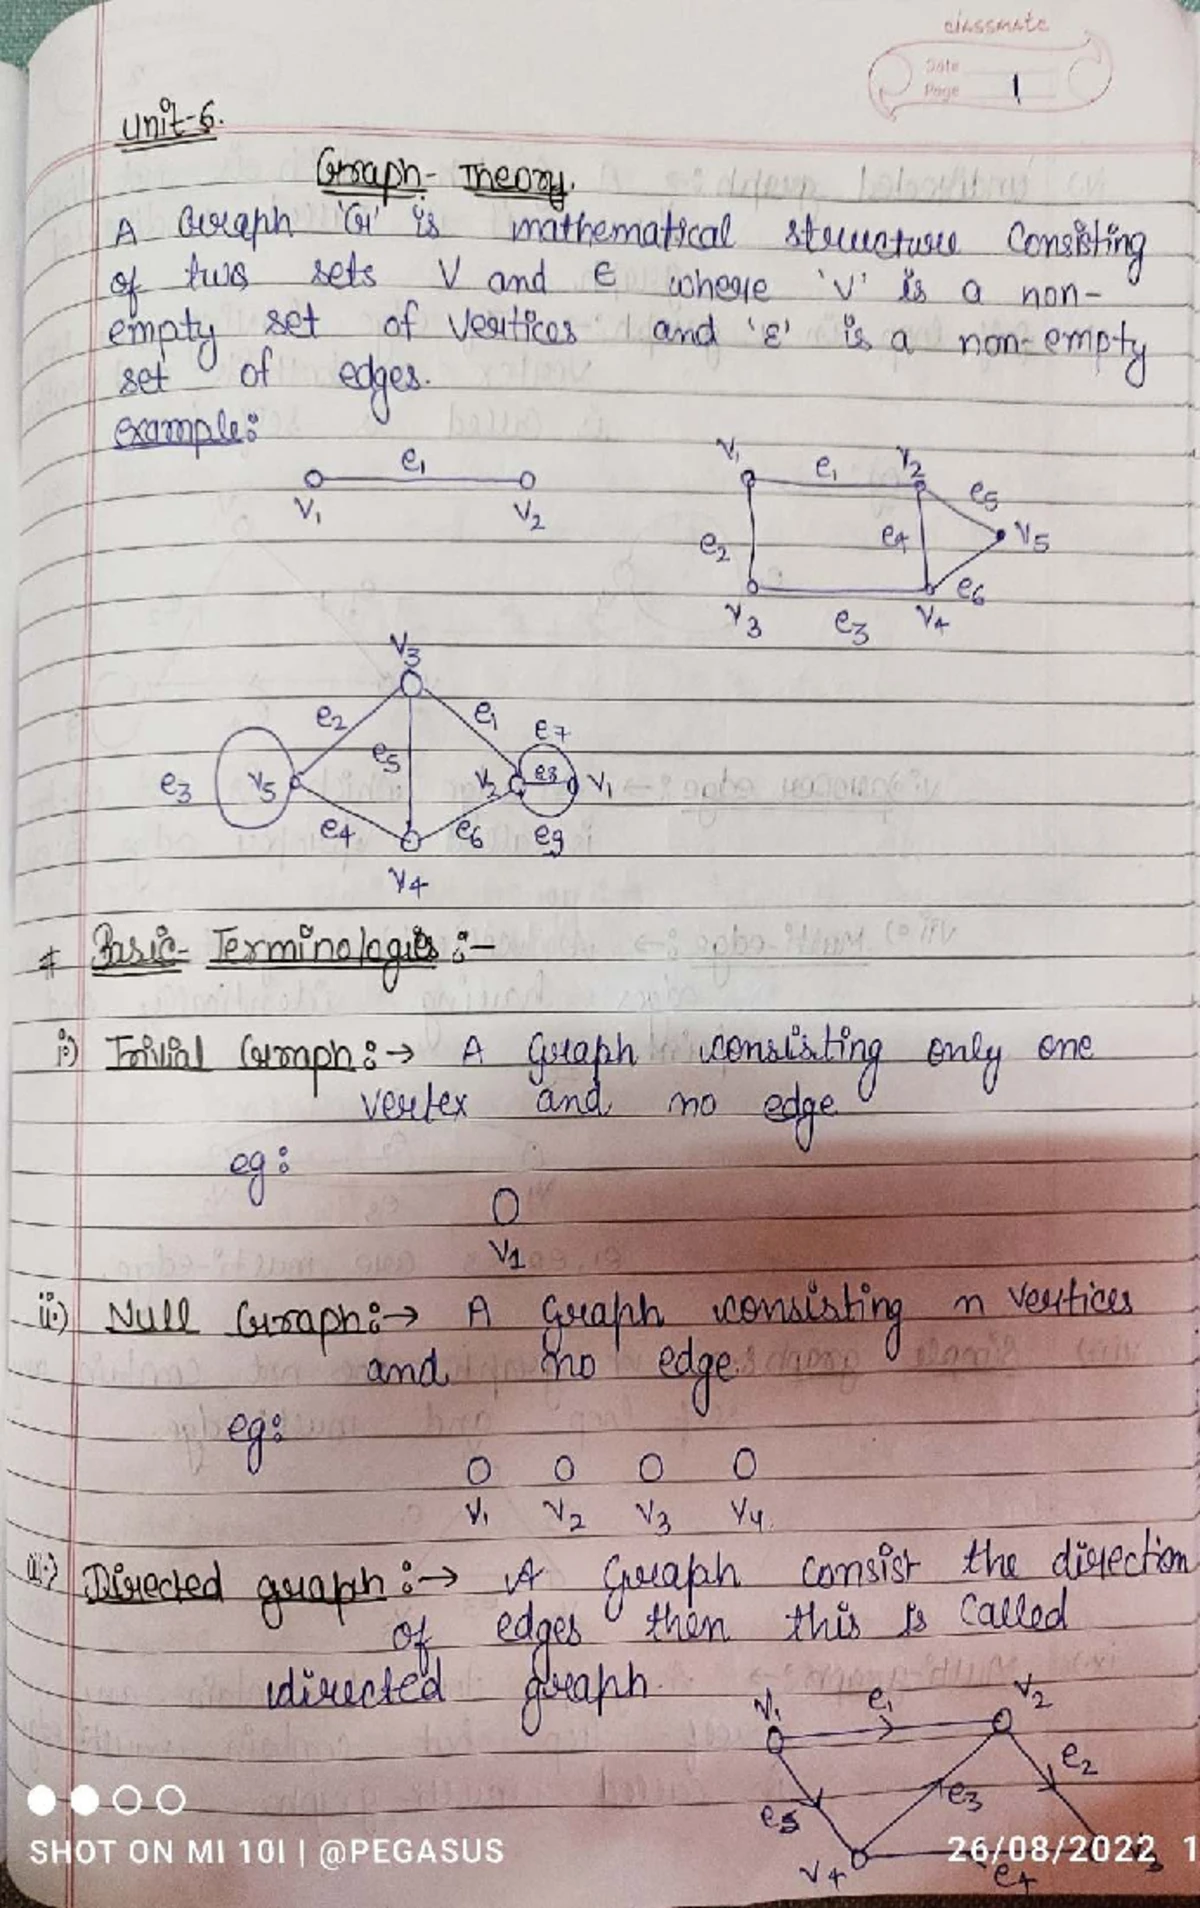 classmate
Date
Page 1
Unit-6.
Graph- Theory.
A Graph 'G' is mathematical structure Consisting
of two sets V and E where 'V' is a non-
empty set of Vertices and 'E' is a non-empty
set of edges.
example:
e1
V1 V2
V1 e1 V2 e5
e2 e4 V5
V3 e3 V4 e6
V3
e2 e1 e7
e3 V5 e5 V2 e8 V1
e4 e6 e9
V4
# Basic- Terminologies :-
i.) Trivial Graph:→ A Graph consisting only one
vertex and no edge
eg:
V1
ii.) Null Graph:→ A Graph consisting n vertices
and no edge.
eg:
V1 V2 V3 V4
iii.) Directed graph:→ A Graph consist the direction
of edges then this is called
directed graph.
V1 e1 V2
e2
e5 e3
V4 e4
SHOT ON MI 10I | @PEGASUS
26/08/2022 1